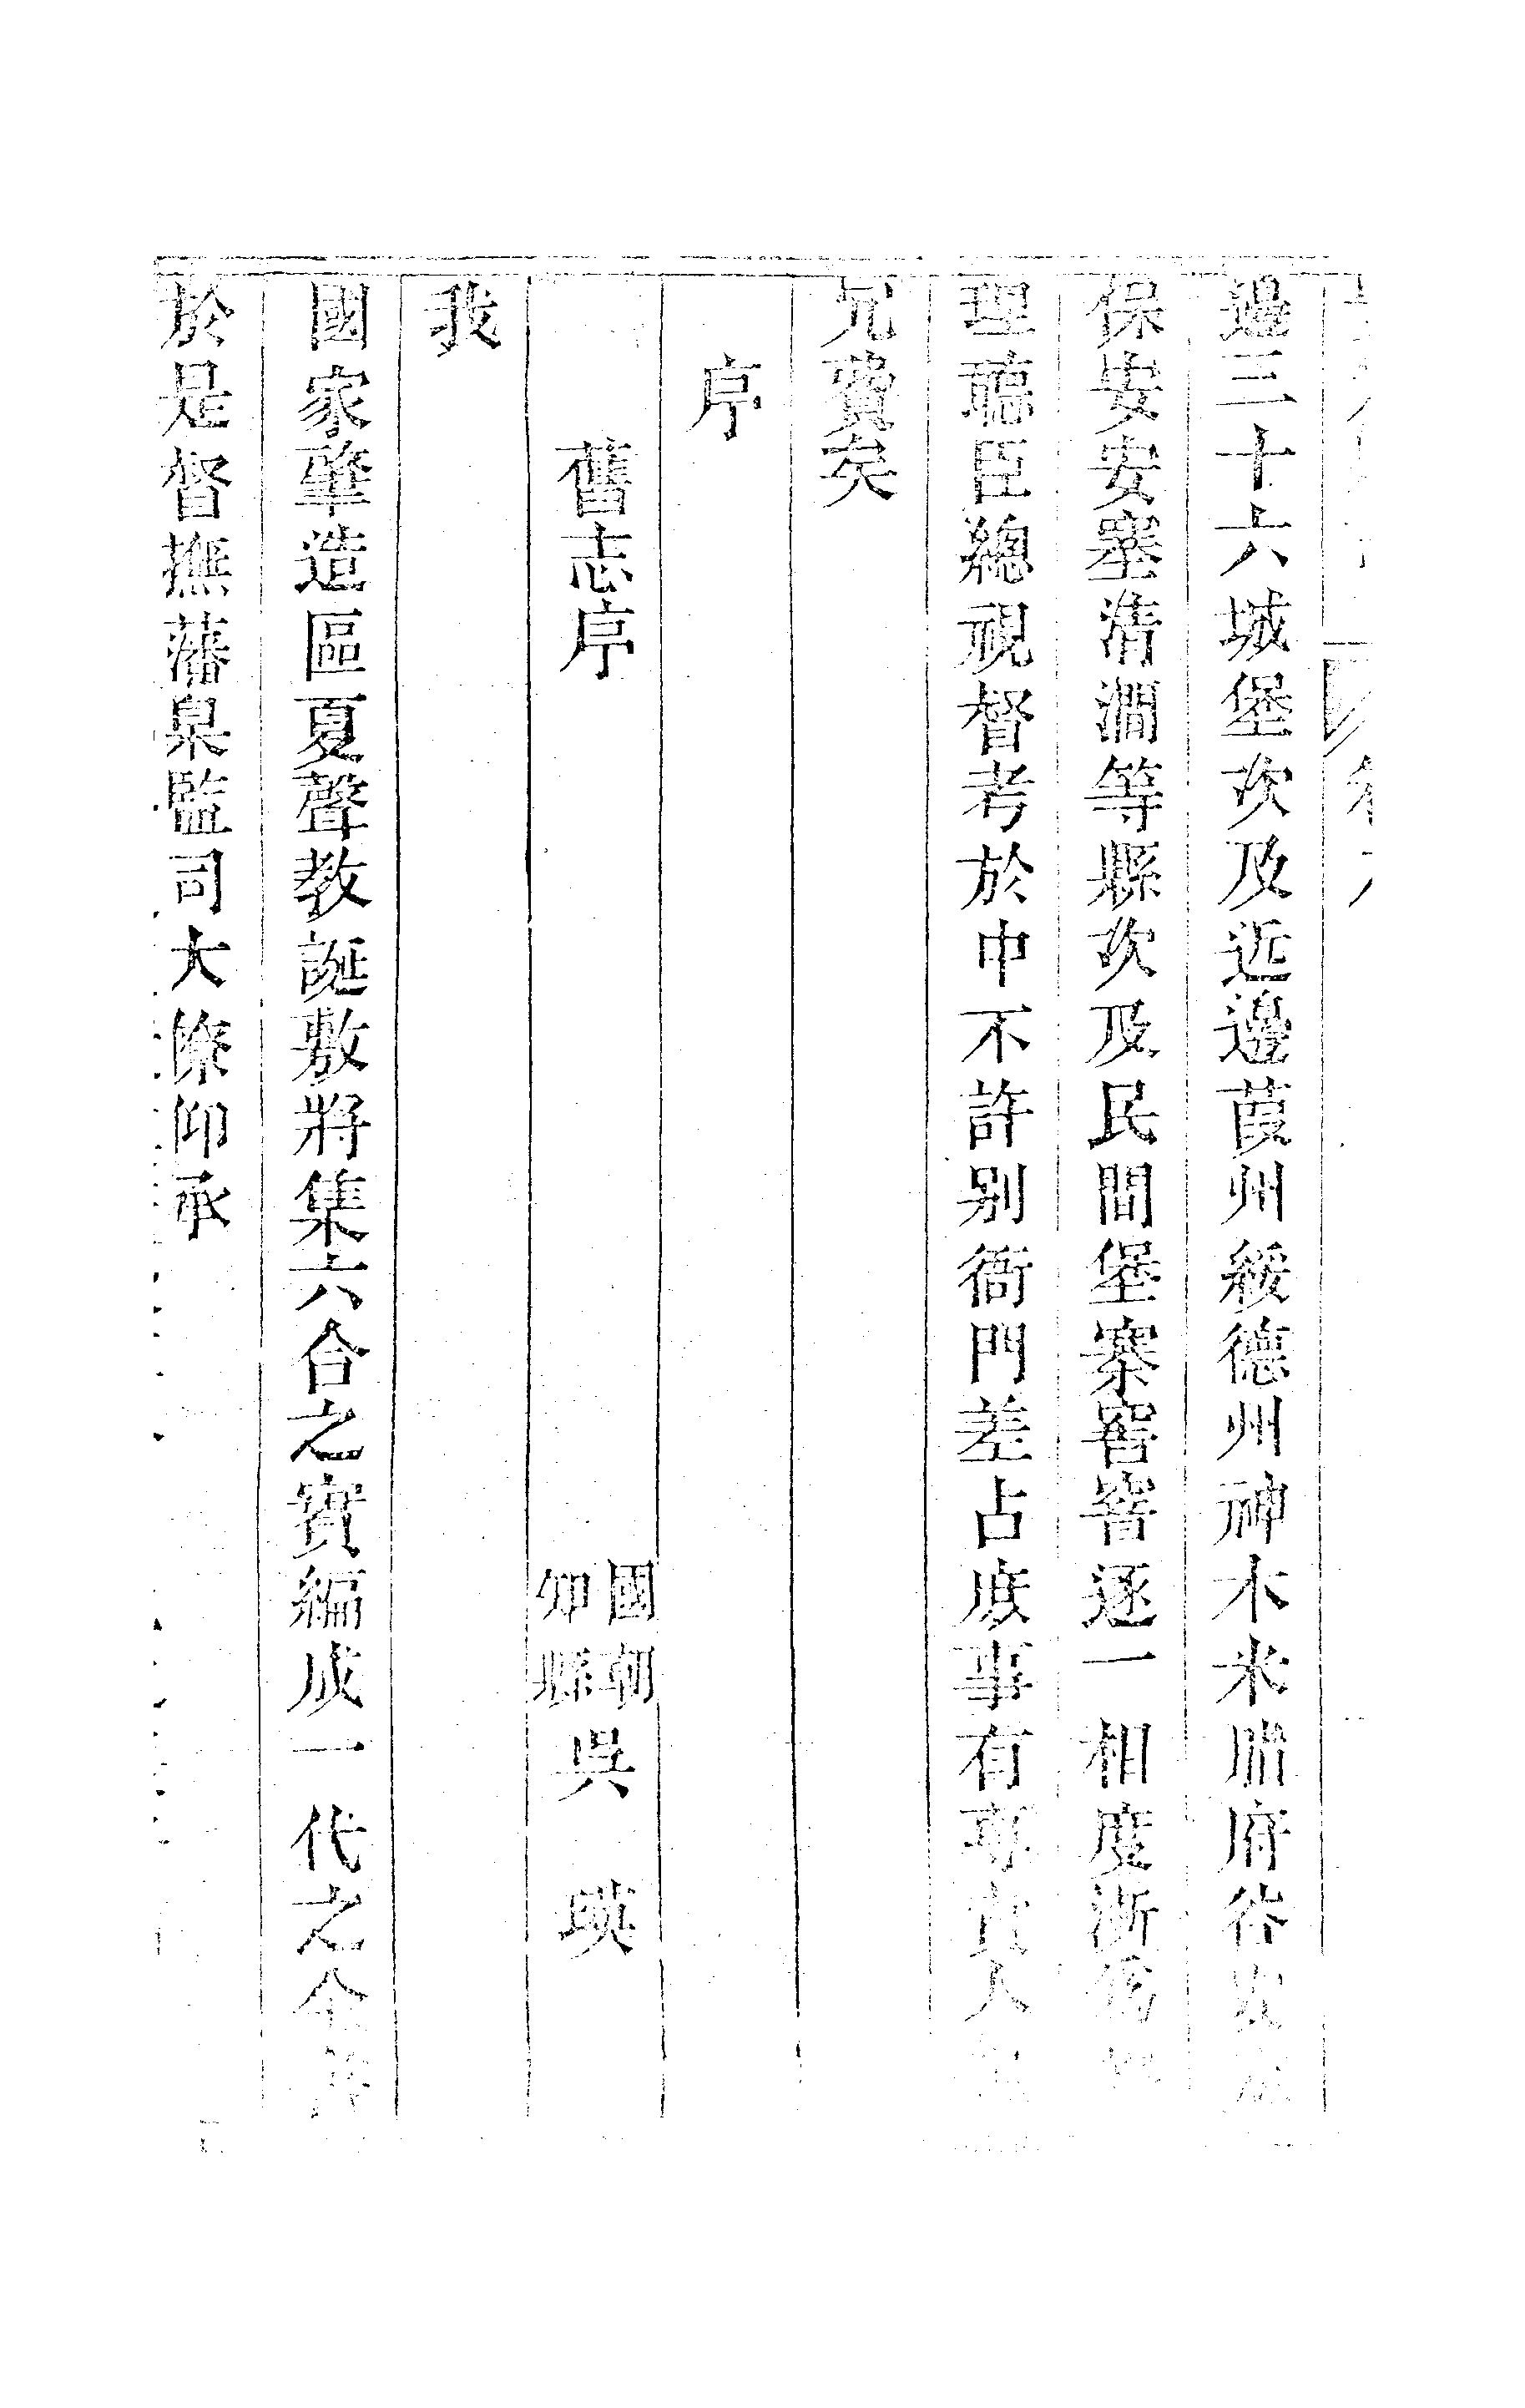 邊三十六城堡次及近邊葭州綏德州神木米脂府谷安
保安安塞清澗等縣次及民間堡寨窖窖逐一相度漸爲
理聽臣總視督考於中不許别衙門差占庶事有專責人
冗費矣
序
舊志序 國朝知縣吳 瑛
我
國家肇造區夏聲教誕敷將集六合之實編成一代之全
於是督撫藩臬監司大僚仰承